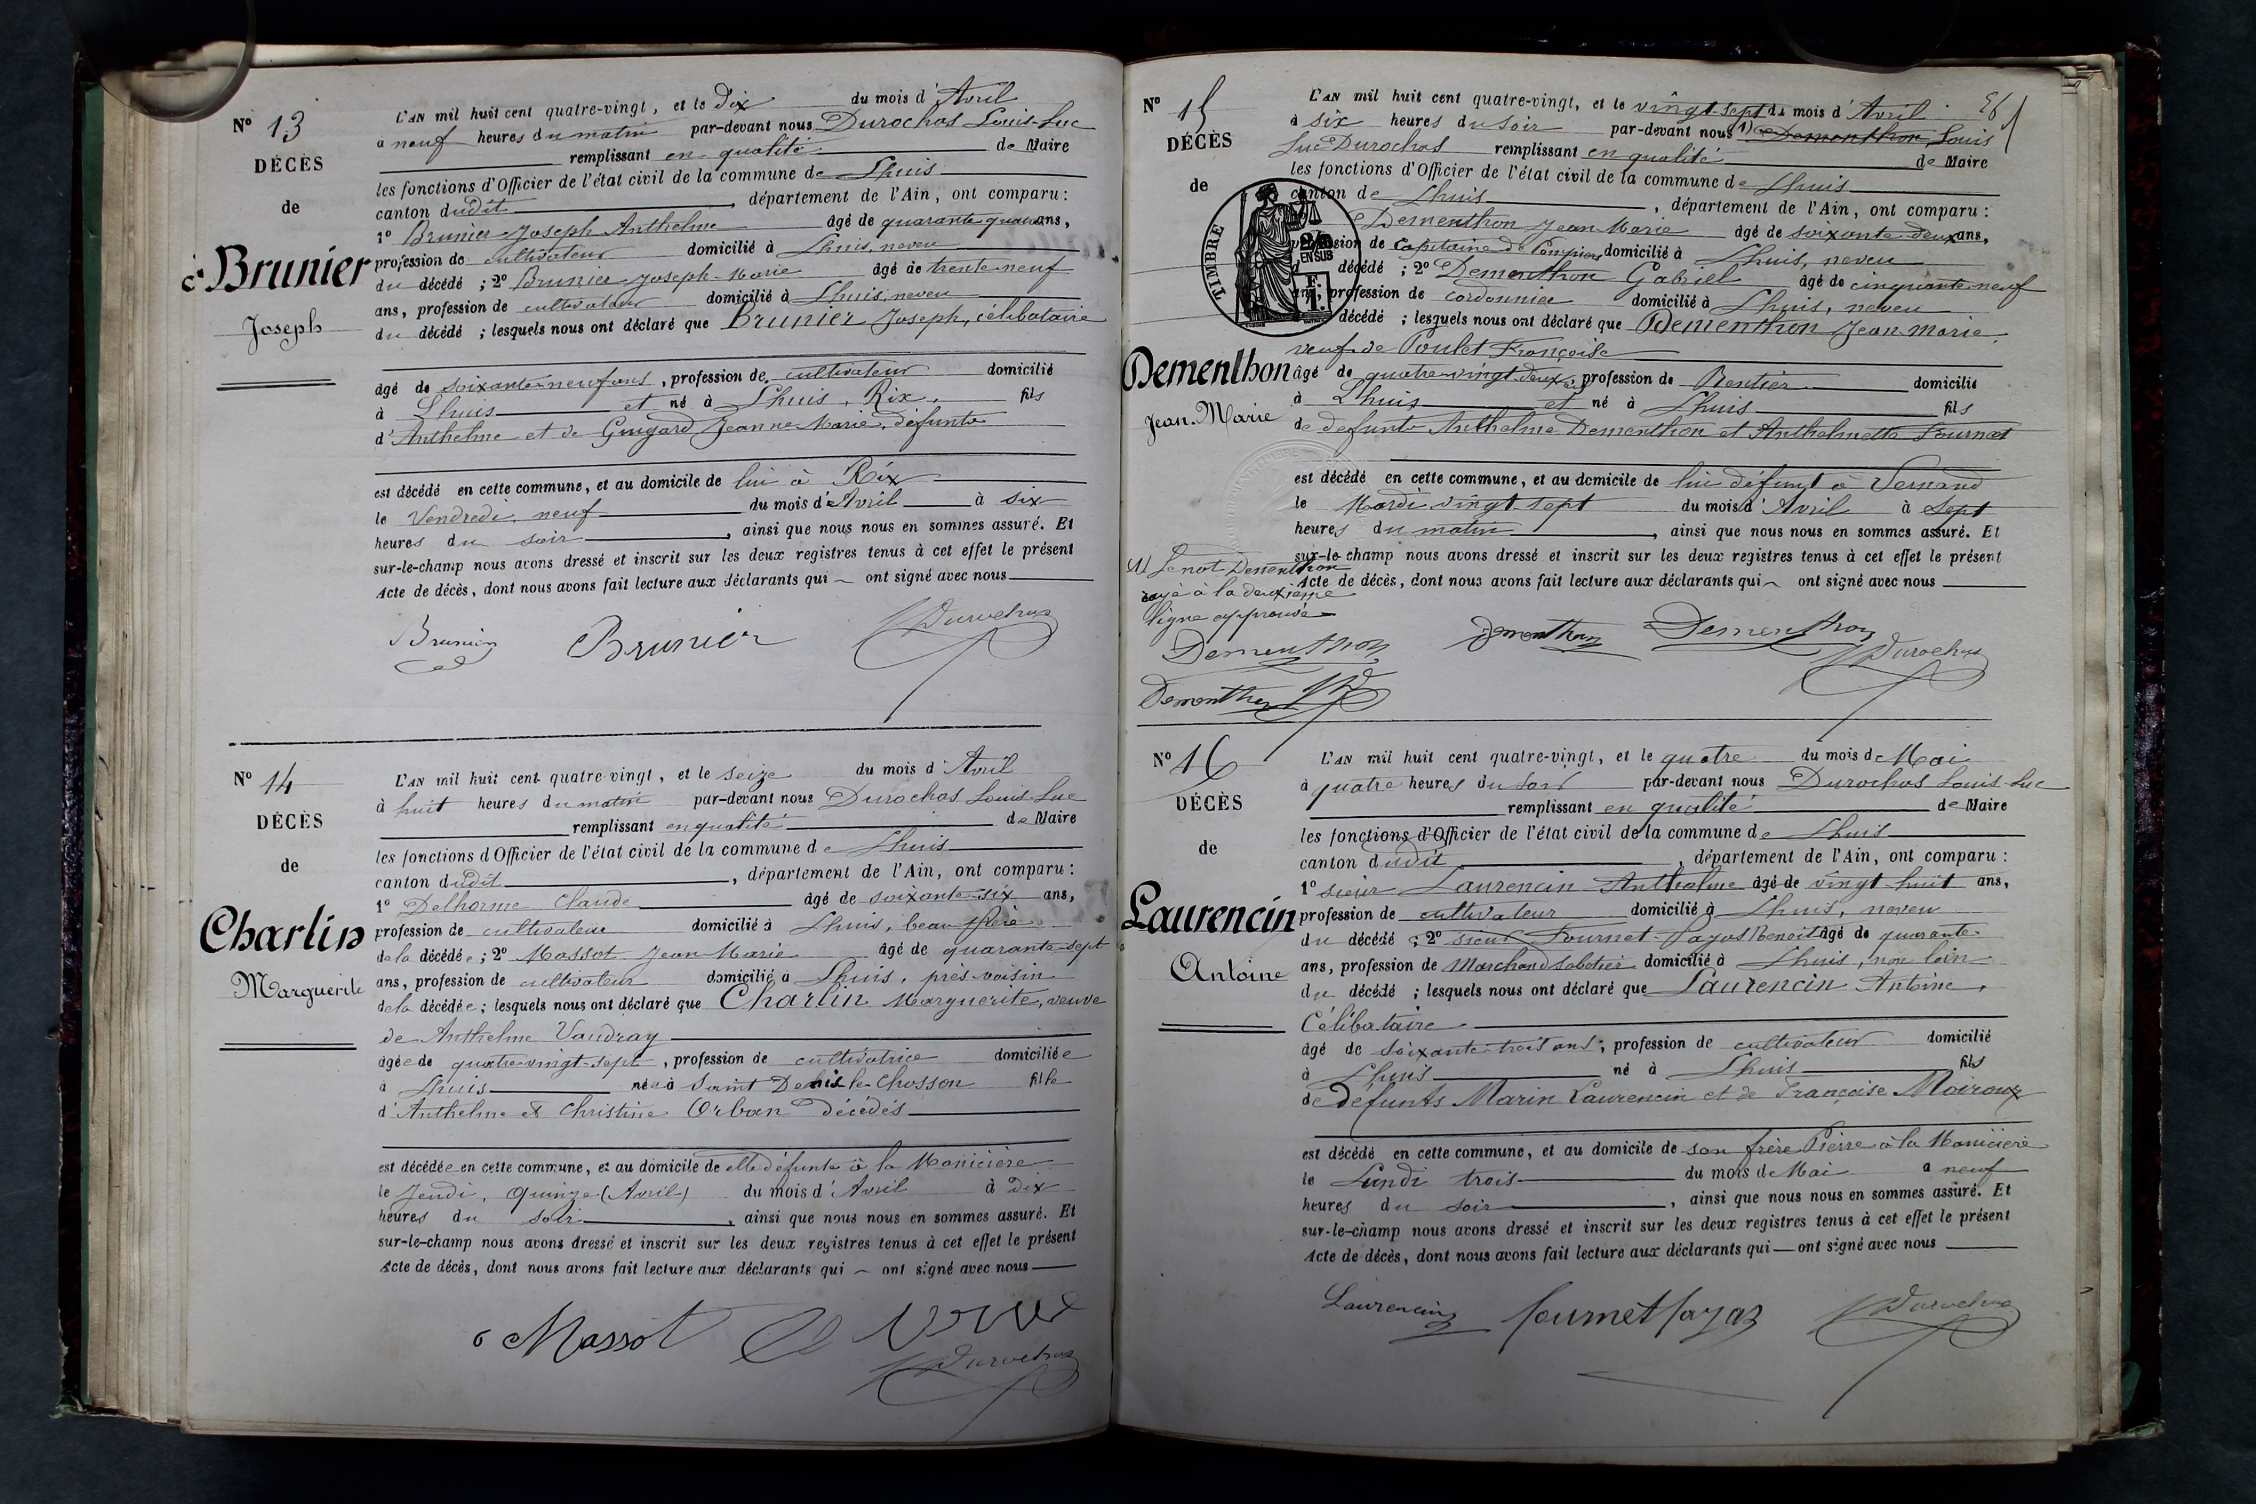 Nº 13
DÉCÈS
de
Brunier
Joseph
L'AN mil huit cent quatre-vingt, et le Dix du mois d'Avril
à neuf heures du matin par-devant nous Durochas Louis Luc
remplissant en qualité de Maire
les fonctions d'Officier de l'état civil de la commune de Lhuis
canton dudit, département de l'Ain, ont comparu :
1º Brunier Joseph Anthelme âgé de quarante quatre ans,
profession de cultivateur domicilié à Lhuis, neveu
du décédé ; 2º Brunier Joseph-Marie âgé de trente-neuf
ans, profession de cultivateur domicilié à Lhuis, neveu
du décédé ; lesquels nous ont déclaré que Brunier Joseph, célibataire
âgé de soixante-neuf ans, profession de cultivateur domicilié
à Lhuis et né à Lhuis, Rix, fils
d'Anthelme et de Gingard Jeanne Marie, défunts
est décédé en cette commune, et au domicile de lui à Rix
le Vendredi, neuf du mois d'Avril à six
heures du soir, ainsi que nous nous en sommes assuré. Et
sur-le-champ nous avons dressé et inscrit sur les deux registres tenus à cet effet le présent
Acte de décès, dont nous avons fait lecture aux déclarants qui ont signé avec nous
Brunier Brunier Durochas
Nº 14
DÉCÈS
de
Charlin
Marguerite
L'AN mil huit cent quatre vingt, et le seize du mois d'Avril
à huit heures du matin par-devant nous Durochas Louis Luc
remplissant en qualité de Maire
les fonctions d'Officier de l'état civil de la commune de Lhuis
canton dudit, département de l'Ain, ont comparu :
1º Delhorme Claude âgé de soixante-six ans,
profession de cultivateur domicilié à Lhuis, beau-frère
de la décédée ; 2º Massot Jean Marie âgé de quarante-sept
ans, profession de cultivateur domicilié à Lhuis, près voisin
de la décédée ; lesquels nous ont déclaré que Charlin Marguerite, veuve
de Anthelme Vaudray
âgée de quatre-vingt-sept, profession de cultivatrice domiciliée
à Lhuis née à Saint Denis-le-Chosson fille
d'Anthelme et Christine Orban décédés
est décédée en cette commune, et au domicile de elle défunte à la Manicière
le Jeudi, quinze (Avril) du mois d'Avril à Dix
heures du soir, ainsi que nous nous en sommes assuré. Et
sur-le-champ nous avons dressé et inscrit sur les deux registres tenus à cet effet le présent
Acte de décès, dont nous avons fait lecture aux déclarants qui ont signé avec nous
Massot
Durochas
Nº 15
DÉCÈS
de
TIMBRE
2/10
EN SUS
Dementhon
Jean-Marie
L'AN mil huit cent quatre-vingt, et le vingt-sept du mois d'Avril
à six heures du soir par-devant nous (1) Dementhon Louis
Luc Durochas remplissant en qualité de Maire
les fonctions d'Officier de l'état civil de la commune de Lhuis
canton de Lhuis, département de l'Ain, ont comparu :
Dementhon Jean Marie âgé de soixante-deux ans,
profession de Capitaine de Pompiers domicilié à Lhuis, neveu
décédé ; 2º Dementhon Gabriel âgé de cinquante-neuf
ans, profession de cordonnier domicilié à Lhuis, neveu
décédé ; lesquels nous ont déclaré que Dementhon Jean Marie,
veuf de Poulet Françoise
âgé de quatre-vingt-deux, profession de Rentier domicilié
à Lhuis et né à Lhuis fils
de défunts Anthelme Dementhon et Anthelmette Fournet
est décédé en cette commune, et au domicile de lui défunt à Vernand
le Mardi vingt-sept du mois d'Avril à sept
heures du matin, ainsi que nous nous en sommes assuré. Et
sur-le-champ nous avons dressé et inscrit sur les deux registres tenus à cet effet le présent
Acte de décès, dont nous avons fait lecture aux déclarants qui ont signé avec nous
(1) Le mot Dementhon
rayé à la deuxième
ligne approuvé
Dementhon Dementhon Dementhon Durochas
Dementhon
Nº 16
DÉCÈS
de
Laurencin
Antoine
L'AN mil huit cent quatre-vingt, et le quatre du mois de Mai
à quatre heures du soir par-devant nous Durochas Louis Luc
remplissant en qualité de Maire
les fonctions d'Officier de l'état civil de la commune de Lhuis
canton dudit, département de l'Ain, ont comparu :
1º sieur Laurencin Anthelme âgé de vingt-huit ans,
profession de cultivateur domicilié à Lhuis, neveu
du décédé ; 2º sieur Fournet-Payos Benoit âgé de quarante
ans, profession de Marchand Sabotier domicilié à Lhuis, non loin
du décédé ; lesquels nous ont déclaré que Laurencin Antoine,
Célibataire
âgé de soixante-trois ans, profession de cultivateur domicilié
à Lhuis né à Lhuis fils
de défunts Marin Laurencin et de Françoise Moiroux
est décédé en cette commune, et au domicile de son frère Pierre à la Manicière
le Lundi trois du mois de Mai à neuf
heures du soir, ainsi que nous nous en sommes assuré. Et
sur-le-champ nous avons dressé et inscrit sur les deux registres tenus à cet effet le présent
Acte de décès, dont nous avons fait lecture aux déclarants qui ont signé avec nous
Laurencin Fournet Payas Durochas